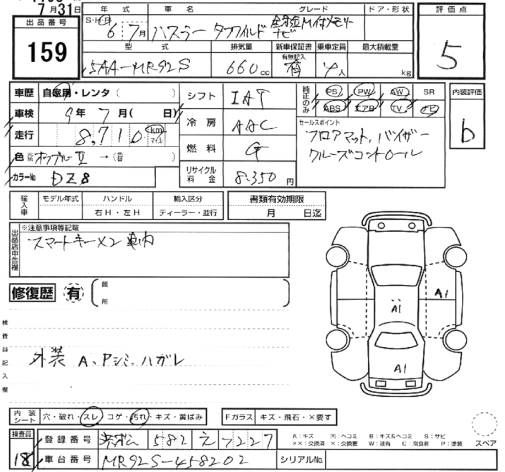 7月31日
出品番号
159
年式 車名 グレード ドア・形状
S・H・R 6年7月 ハスラー タフワイルド 全方位M付メモリーナビ
評価点
5
型式 排気量 新車保証書 乗車定員 最大積載量
有無記入
5AA-MR92S 660cc 有 4人 kg
車歴 自家用・レンタ
車検 9年7月(日)
走行 8,710 km マイル
色
カラーNo DZ8
シフト IAT
冷房 AAC
燃料 G
リサイクル料金 8,350円
純正のみ
PS PW AW SR
ABS エアB TV
内装評価
b
セールスポイント
フロアマット、バイザー
クルーズコントロール
輸入車 モデル年式 ハンドル 輸入区分
年 右H・左H ディーラー・並行
書類有効期限
月 日迄
※注意事項等記載
スマートキー×2 車内
修復歴 有
箇所
検査員記入欄
外装 A、Pシミ、ハガレ
A1
A1
A1
スペア
内装シート 穴・破れ・スレ コゲ・汚れ キズ・黄ばみ Fガラス キズ・飛石・×要す
検査員
18
登録番号 浜松 582 え 7227
車台番号 MR92S-458202 シリアルNo.
A:キズ B:キズ&ヘコミ S:サビ
××:交換済 ×:要交換 P:塗装